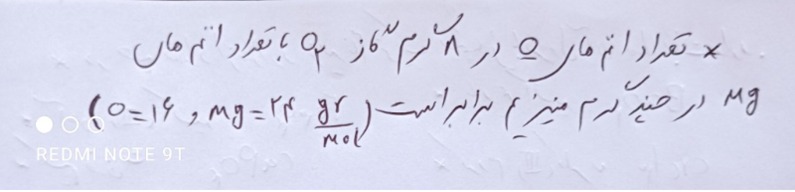 × تعداد اتم های O در ۸ گرم گاز O₂ با تعداد اتم های
Mg در چند گرم منیزیم برابر است (O=۱۶ , Mg=۲۴ gr/mol)
REDMI NOTE 9T